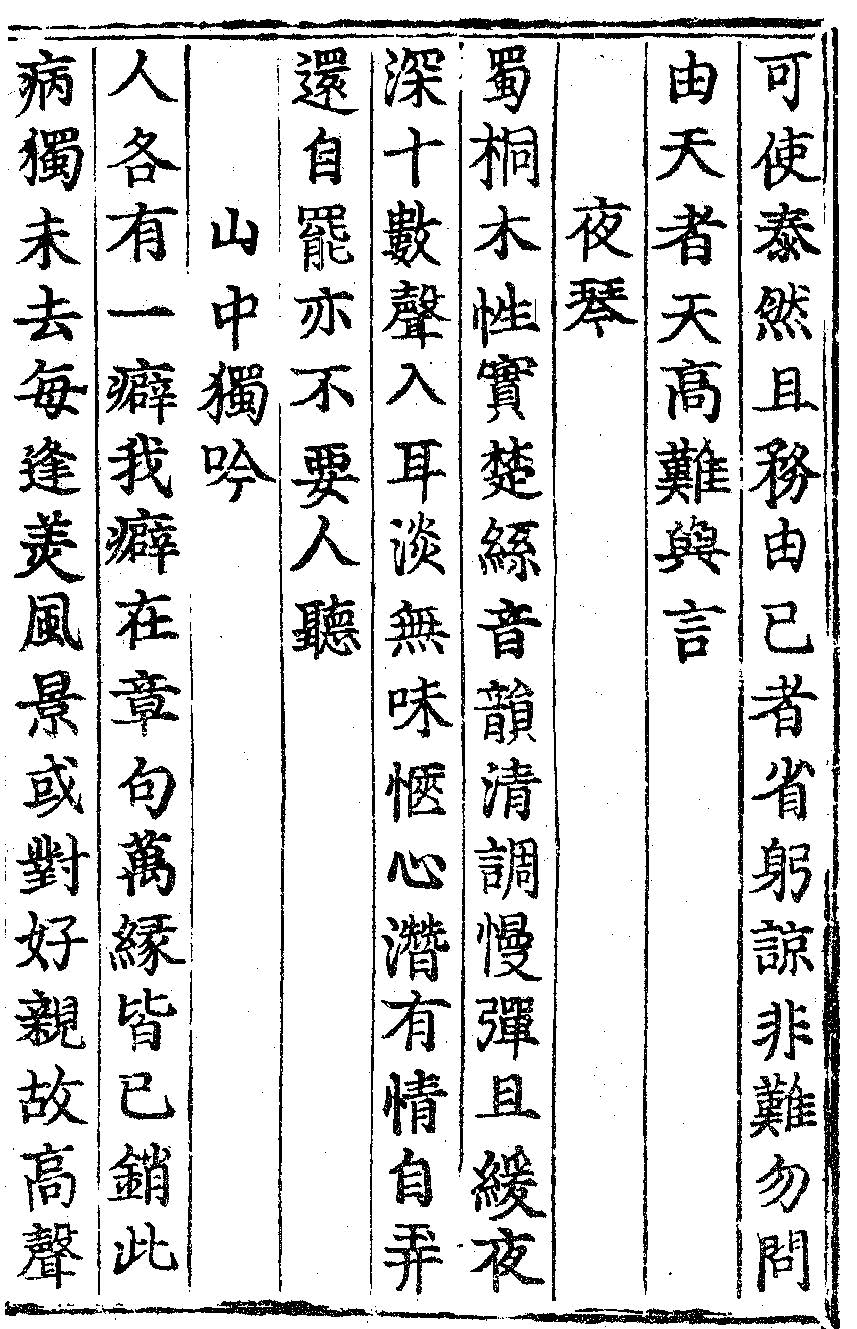 可使泰然且務由己者省躬諒非難勿問
由天者天高難與言
夜琴
蜀桐木性實楚絲音韻清調慢彈且緩夜
深十數聲入耳淡無味愜心潛有情自弄
還自罷亦不要人聽
山中獨吟
人各有一癖我癖在章句萬緣皆已銷此
病獨未去每逢美風景或對好親故高聲